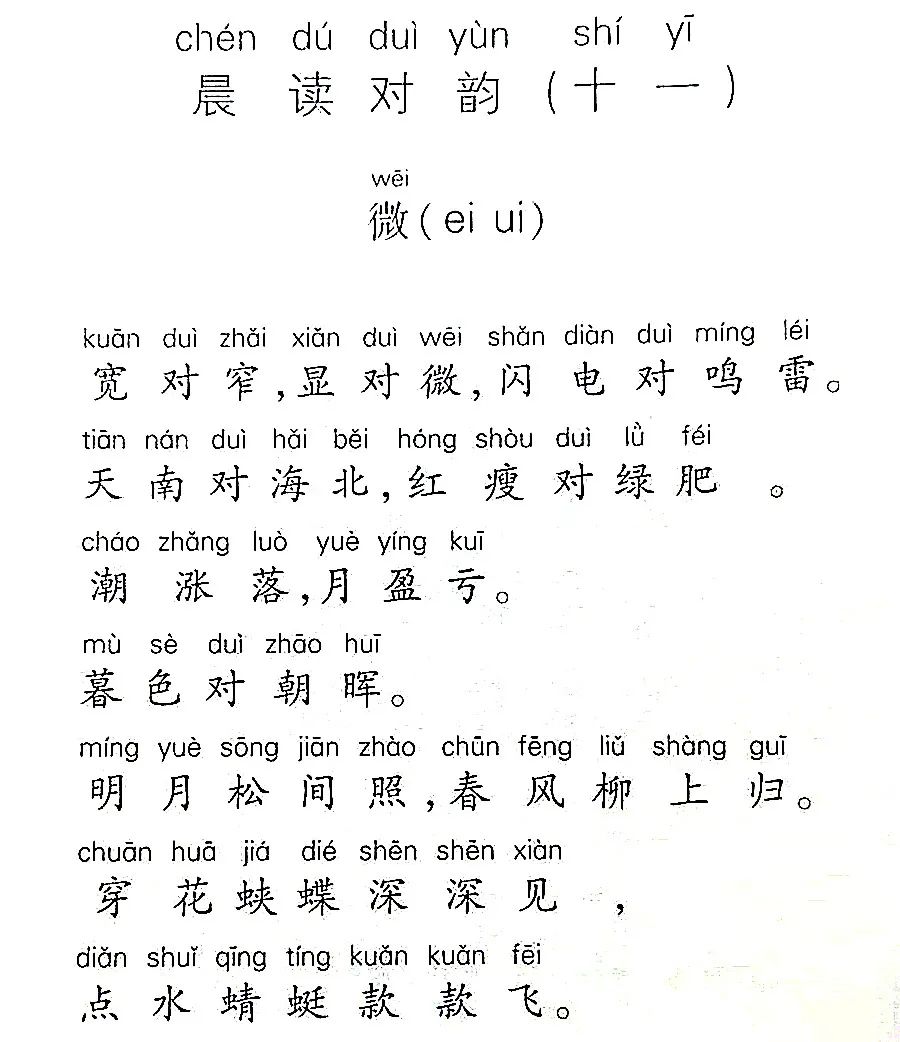 chén dú duì yùn shí yī
晨读对韵(十一)
wēi
微(ei ui)
kuān duì zhǎi xiǎn duì wēi shǎn diàn duì míng léi
宽对窄,显对微,闪电对鸣雷。
tiān nán duì hǎi běi hóng shòu duì lǜ féi
天南对海北,红瘦对绿肥。
cháo zhǎng luò yuè yíng kuī
潮涨落,月盈亏。
mù sè duì zhāo huī
暮色对朝晖。
míng yuè sōng jiān zhào chūn fēng liǔ shàng guī
明月松间照,春风柳上归。
chuān huā jiá dié shēn shēn xiàn
穿花蛱蝶深深见,
diǎn shuǐ qīng tíng kuǎn kuǎn fēi
点水蜻蜓款款飞。